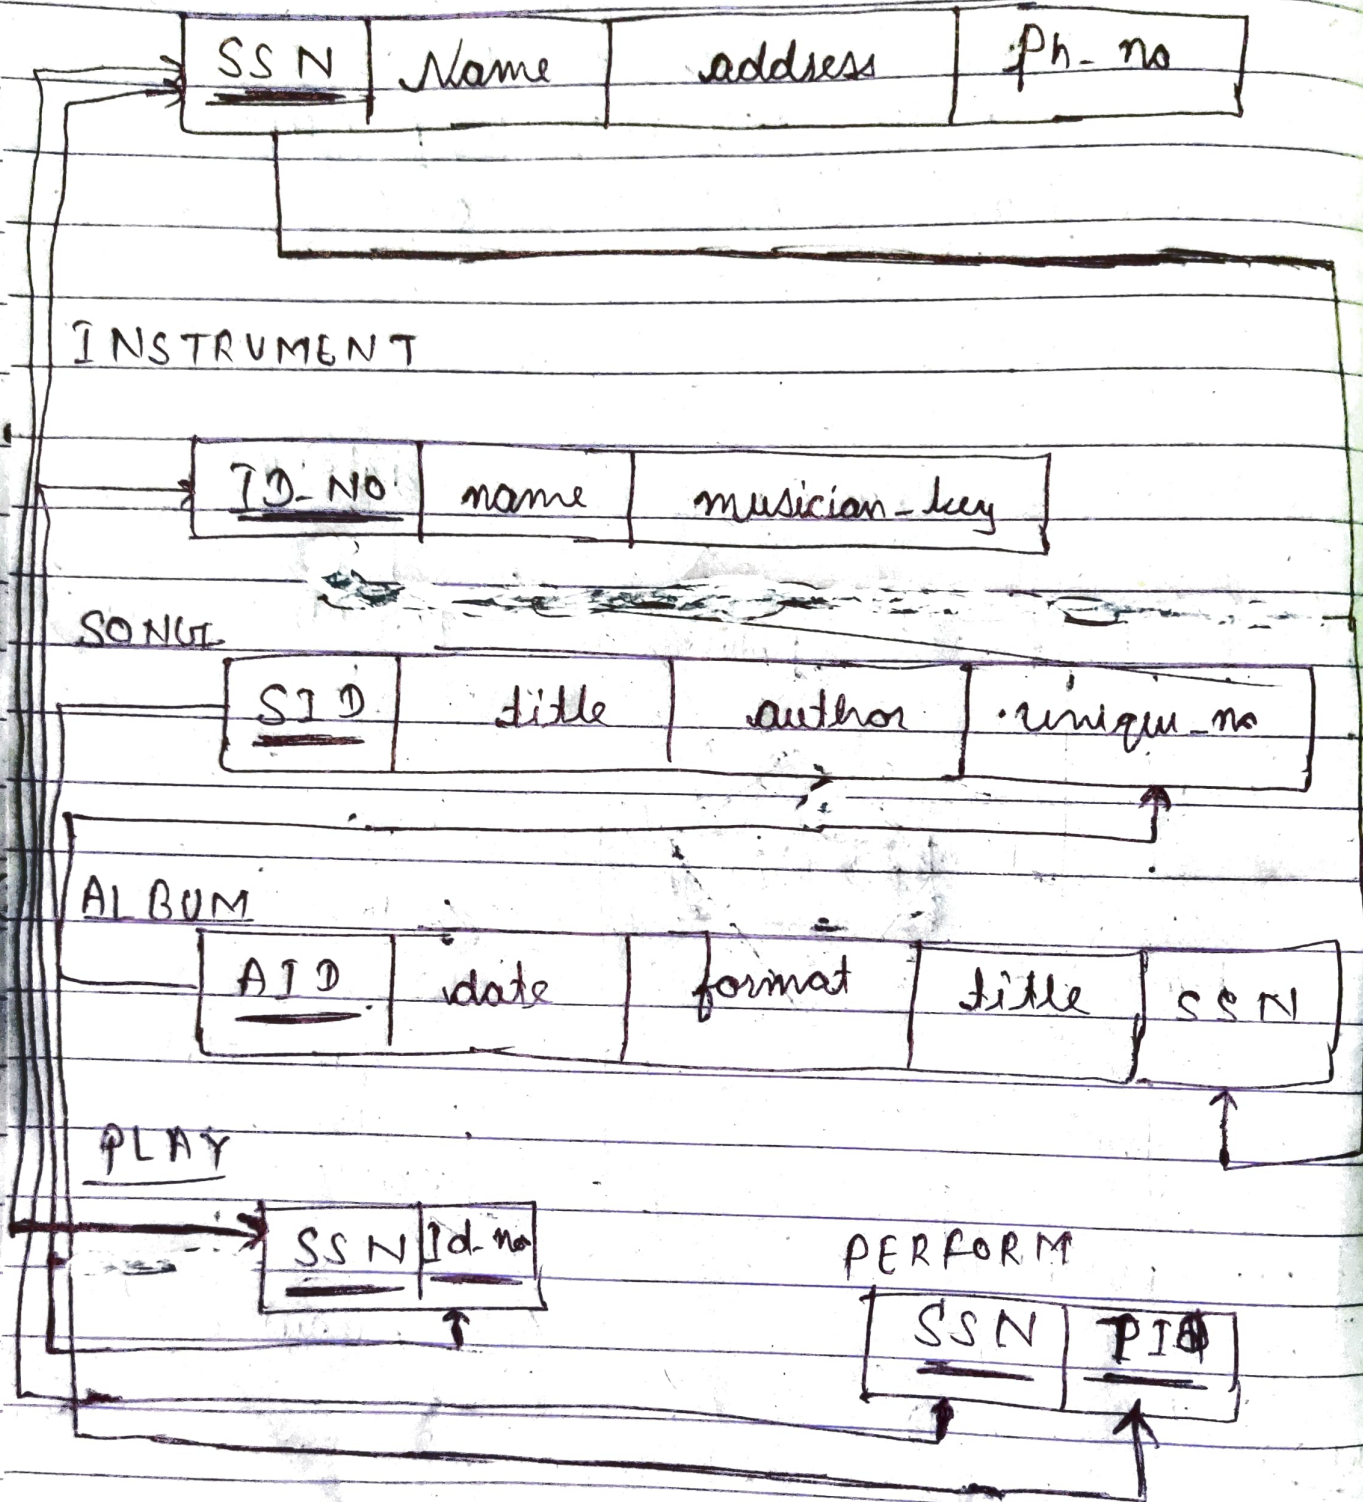 SSN Name address Ph_no
INSTRUMENT
ID_NO name musician_key
SONG
SID title author uniqu_no
ALBUM
AID date format title SSN
PLAY
SSN Id_no
PERFORM
SSN